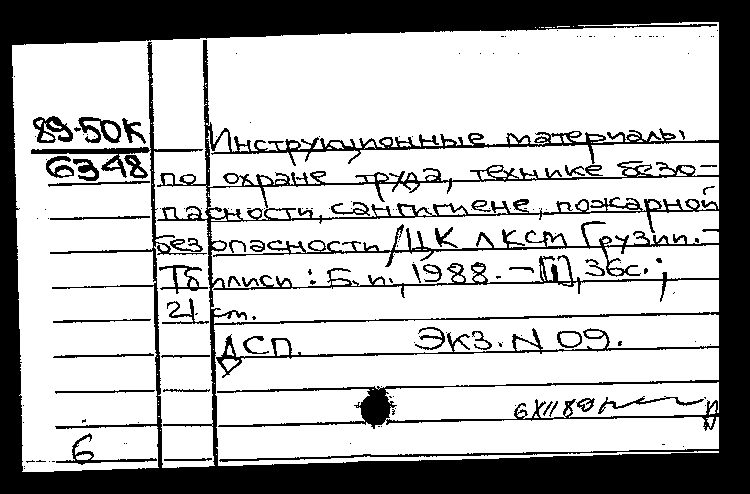 89-50К
6348
Инструкционные материалы
по охране труда, технике безо-
пасности, сангигиене, пожарной
безопасности / ЦК ЛКСМ Грузии. -
Тбилиси : Б. и., 1988. - [1], 36с. ;
21 см.
ДСП. Экз. N 09.
6 XII 89
6